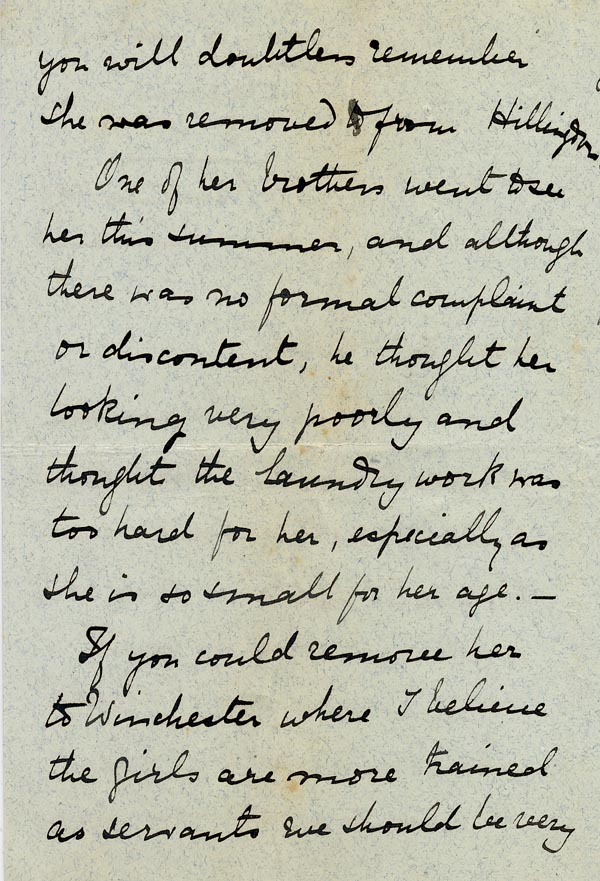 you will doubtless remember
she was removed from Hillingdon
One of her brothers went to see
her this summer, and although
there was no formal complaint
or discontent, he thought her
looking very poorly and
thought the laundry work was
too hard for her, especially as
she is so small for her age. —
If you could remove her
to Winchester where I believe
the girls are more trained
as servants we should be very